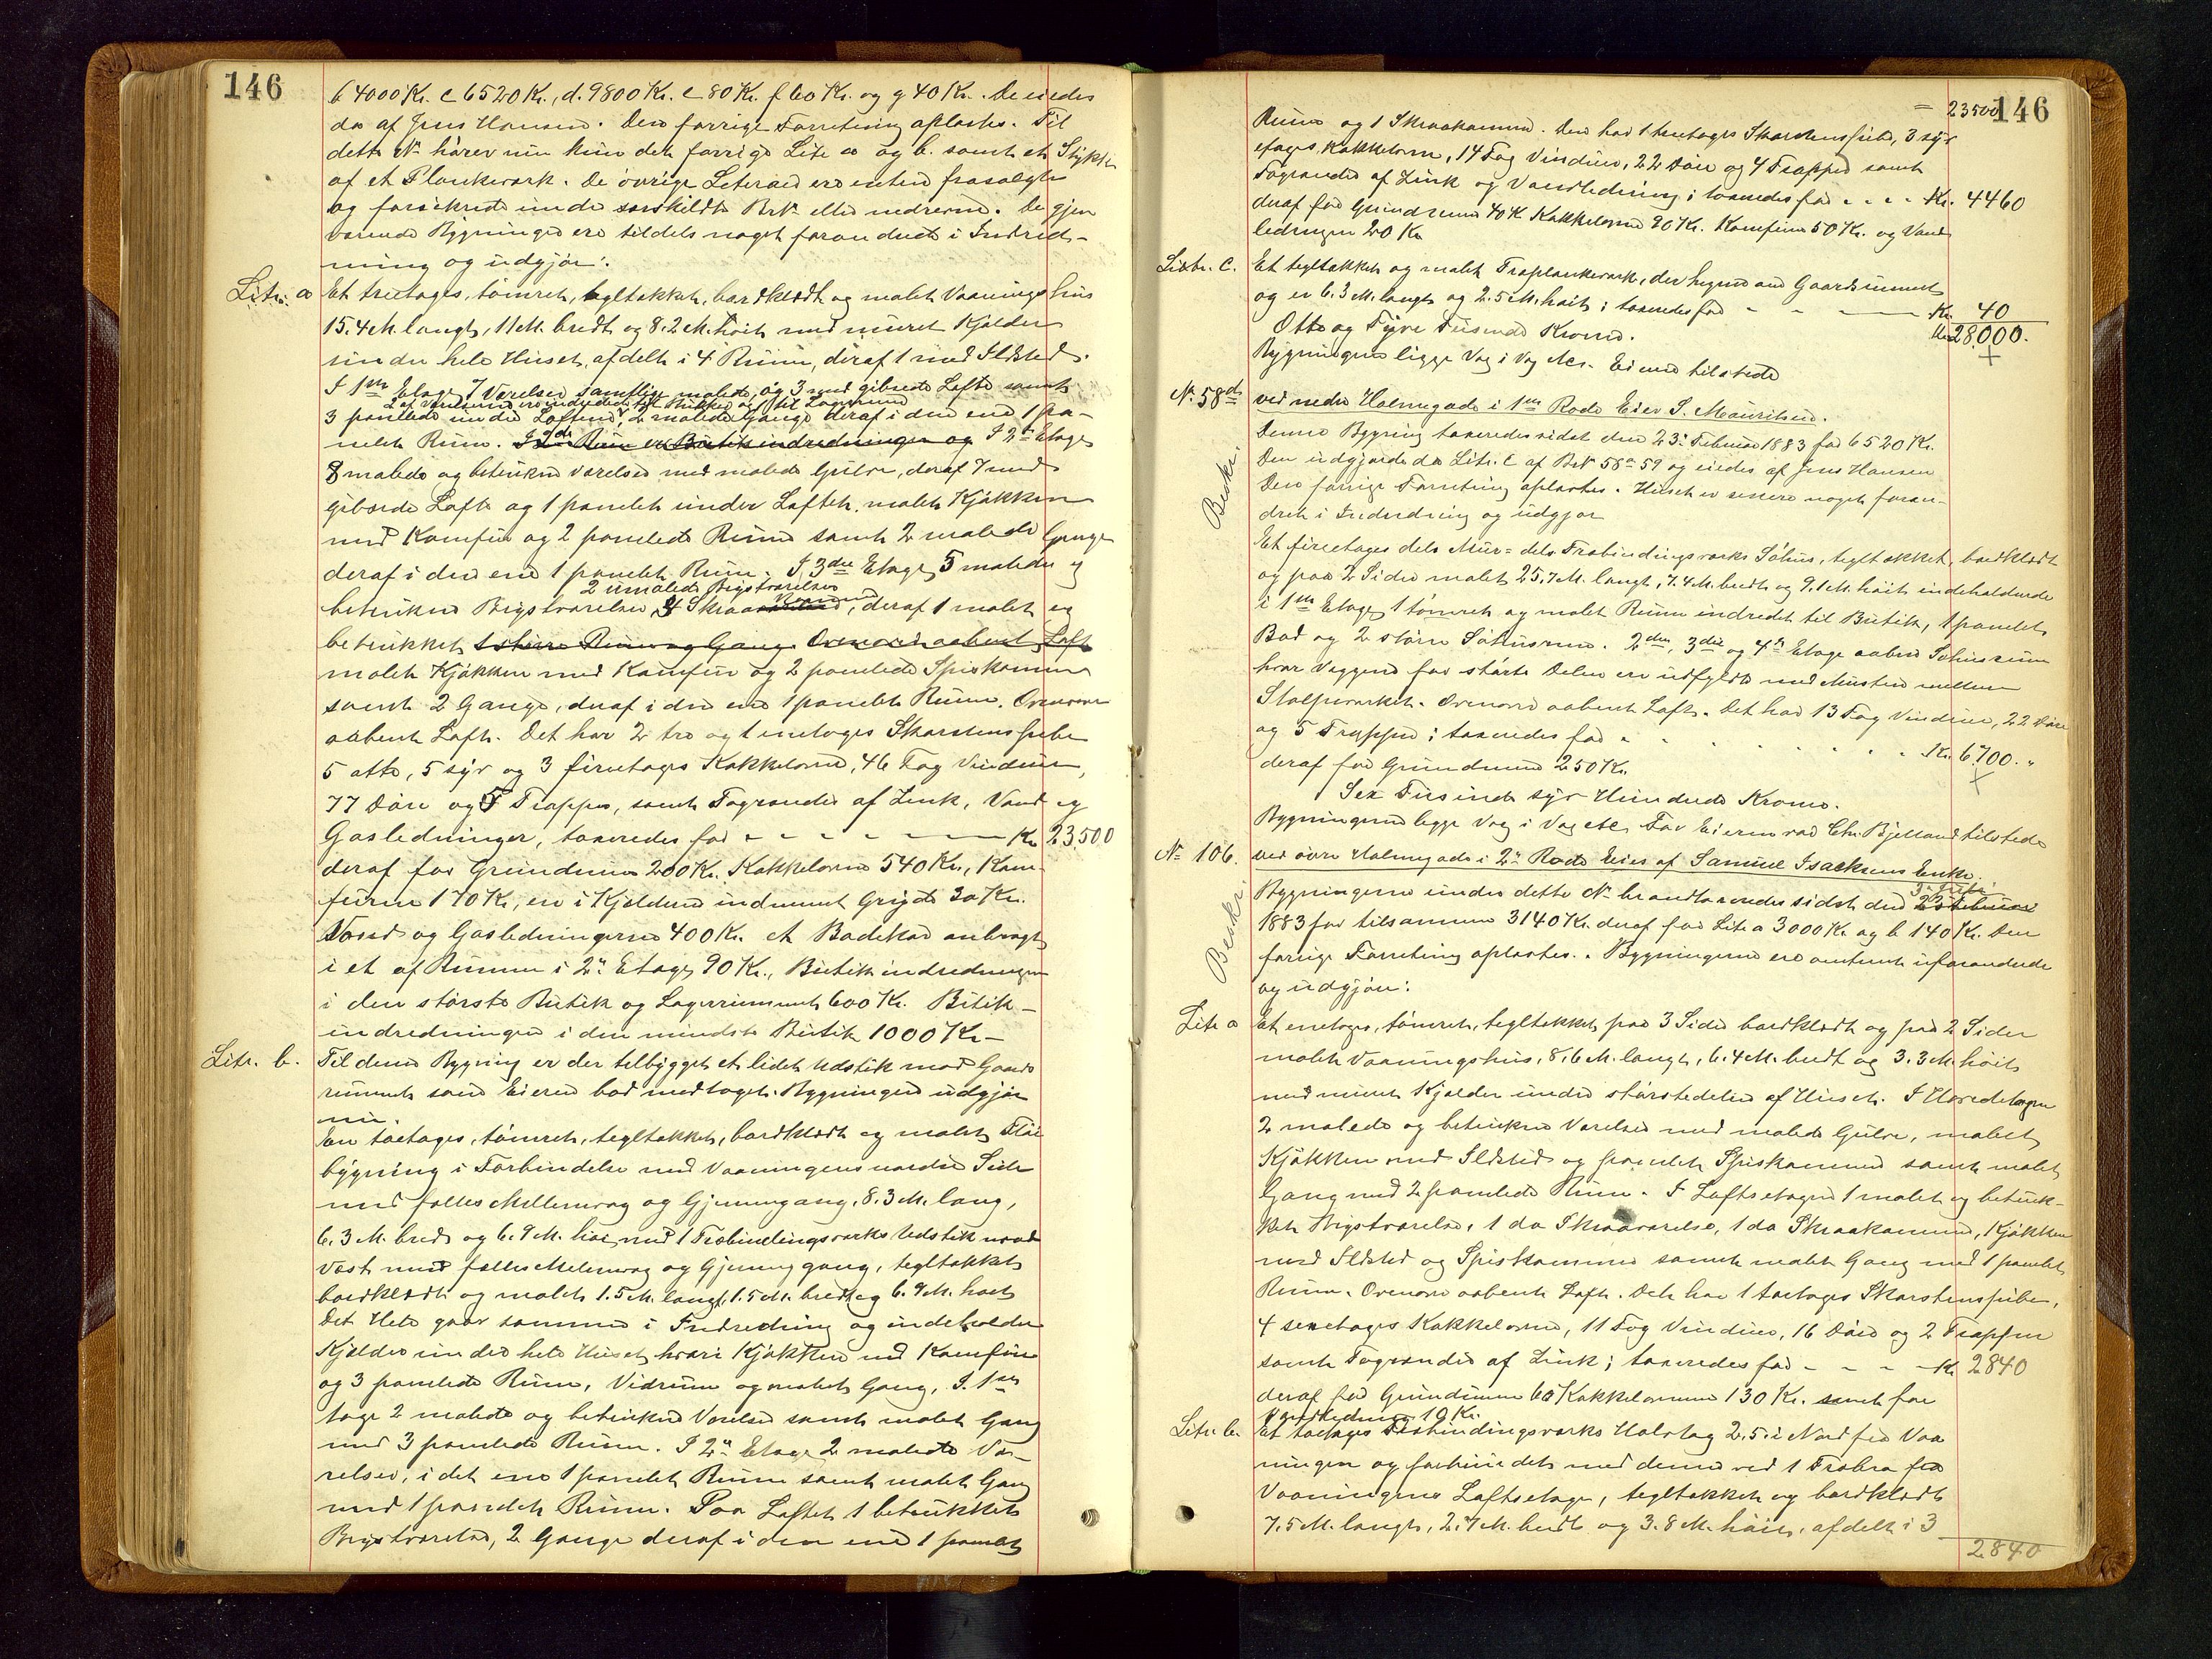 146
b 4000 Kr. c 6520 Kr., d. 9800 Kr. e 80 Kr. f 60 Kr. og g 40 Kr. De eiedes
da af Jens Hansen. Den forrige Forretning oplæstes. Til
dette No hörer nu kun det forrige Litr a og b. samt et Stykke
af et Plankeværk. De övrige Literaer ere enten frasolgte
og forsikrede under særskildte Br No eller nedrevne. De gjen
værende Bygninger ere tildels noget forandrede i Indred-
ning og udgjör:
Litr. a Et treetages, tömret, tegltækket, bordklædt og malet Vaaningshus
15.4 M. langt, 11 M. bredt og 8.2 M. höit med muret Kjelder
under hele Huset, afdelt i 4 Rum, deraf 1 med Ildsted.
I 1ste Etage 7 Værelser samtlige malede, og 3 med gibsede Lofte samt
2 af Værelserne ere indredede til Butikker og 1 til Lagerrum
3 panelede under Lofterne, 2 malede Gange deraf i den ene 1 pa-
nelet Rum. I 2de Rum er Butikindredninger og I 2den Etage
8 malede og betrukne Værelser med malede Gulve, deraf 7 med
gibsede Lofte og 1 panelet under Loftet, malet Kjökken
med Komfur og 2 panelede Rum samt 2 malede Gange
deraf i den ene 1 panelet Rum. I 3die Etage 5 malede og
2 umalede Bigstværelser
betrukne Bigstværelser, 4 Skraakammer, deraf 1 malet og
betrukket 1 större Rum og Gang. Ovenover aabent Loft
malet Kjökken med Komfur og 2 panelede Spiskammer
samt 2 Gange, deraf i den ene 1 panelet Rum. Ovenover
aabent Loft. Det har 2 tre og 1 enetages Skorstenspibe
5 otte, 5 syv og 3 fireetages Kakkelovne, 46 Fag Vinduer,
77 Döre og 5 Trapper, samt Tagrender af Zink, Vand og
Gasledninger, taxeredes for - - - - - - Kr 23500
deraf for Grundmur 200 Kr. Kakkelovne 540 Kr., Kom-
furene 170 Kr, en i Kjelderen indmuret Gryde 30 Kr.
Vand og Gasledningerne 400 Kr. et Badekar anbragt
i et af Rummene i 2den Etage 90 Kr., Butikindredningen
i den störste Butik og Lagerrummet 600 Kr. Butik-
indredningen i den mindste Butik 1000 Kr -
Litr. b. Til denne Bygning er der tilbygget et lidet Udstik mod Gaards
rummet som Eieren bad medtaget. Bygningen udgjör
nu.
En toetages, tömret, tegltækket, bordklædt og malet Flöi
bygning i Forbindelse med Vaaningens nordre Side
med fælles Mellemvæg og Gjennemgang, 8.3 M. lang,
6.3 M. bred og 6.9 M. höi, med 1 Træbindingsværks Udstik mod
Vest med fælles Mellemvæg og Gjennemgang, tegltækket
bordklædt og malet 1.5 M. langt, 1.5 M. bredt og 6.9 M. höit
Det Hele gaar sammen i Indredning og indeholder
Kjelder under hele Huset hvori Kjökken med Komfur
og 3 panelede Rum, Vedrum og malet Gang, I 1ste
tage 2 malede og betrukne Værelser samt malet Gang
med 3 panelede Rum. I 2den Etage 2 malede Væ-
relser, i det ene 1 panelet Rum samt malet Gang
med 1 panelet Rum. Paa Loftet 1 betrukket
Bigstværelse, 2 Gange deraf i den ene 1 panelet
= 23500 146
Rum og 1 Skraakammer. Den har 1 treetages Skorstenspibe, 3 syv
etages Kakkelovne, 14 Fag Vinduer, 22 Döre og 4 Trapper samt
Tagrender af Zink og Vandledning; taxeredes for - - - - Kr. 4460
deraf for Grundmur 40 K. Kakkelovne 90 Kr. Komfuren 50 Kr. og Vand
ledningen 20 Kr
Listr. C. Et tegltækket og malet Træplankeværk, der hegner om Gaardsrummet
og er 6.3 M. langt og 2.5 M. höit; taxeredes for - - - Kr 40
Otte og Tyve Tusende Kroner. Kr 28,000.
Bygningerne ligge Væg i Væg etc. Eieren tilstede
No 58 d. ved nedre Holmegade i 1ste Rode Eier S. Mauritzen.
Beskr.
Denne Bygning taxeredes sidst den 23' Februar 1883 for 6520 Kr.
Den udgjorde da Litr. C af Br No 58 a 59 og eiedes af Jens Hansen
Den forrige Forretning oplæstes. Huset er senere noget foran-
dret i Indredning og udgjör
Et fireetages dels Mur = dels Træbindingsværks Söhus, tegltækket, bordklædt
og paa 2 Sider malet, 25,7 M. langt, 7.4 M. bredt og 9.1 M. höit indeholdende
i 1ste Etage 1 tömret og malet Rum indredet til Butik, 1 panelet
Bod og 2 större Söhusrum. 2den, 3die og 4de Etage aabne Söhusrum
hvor Væggene for störste Delen ere udfyldt med Mursten mellem
Stolpeværket. Ovenover aabent Loft. Det har 13 Fag Vinduer, 22 Döre
og 5 Trapper; taxeredes for - - - - - - Kr. 6700. "
deraf for Grundmur 250 Kr.
Sex Tusinde syv Hundrede Kroner.
Bygningerne ligge Væg i Væg etc. For Eieren var Chr. Bjelland tilstede
No 106. ved övre Holmegade i 2den Rode Eies af Samuel Isachsens Enke.
Beskr.
Bygningerne under dette No brandtaxeredes sidst den 23 Februar
1883 for tilsammen 3140 Kr. deraf for Litr a 3000 Kr og b 140 Kr. Den
forrige Forretning oplæstes. Bygningerne ere omtrent uforandrede
og udgjör:
Litr a Et enetages, tömret, tegltækket paa 3 Sider bordklædt og paa 2 Sider
malet Vaaningshus, 8,6 M. langt, 6.4 M. bredt og 3.3 M. höit
med muret Kjelder under störstedelen af Huset. I Hovedetagen
2 malede og betrukne Værelser med malede Gulve, malet
Kjökken med Ildsted og panelet Spiskammer samt malet
Gang med 2 panelede Rum. I Loftsetagen 1 malet og betruk-
ket Bigstværelse, 1 do Skraaværelse, 1 do Skraakammer, Kjökken
med Ildsted og Spiskammer samt malet Gang med 1 panelet
Rum. Ovenover aabent Loft. Det har 1 toetages Skorstenspibe,
4 sexetages Kakkelovne, 11 Fag Vinduer, 16 Döre og 2 Trapper
samt Tagrender af Zink; taxeredes for - - - - Kr 2840
deraf for Grundmur 60 Kakkelovnene 130 Kr. samt for
Vandledning 10 Kr.
Litr b. Et toetages Træbindingsværks Halvtag 2.5 i Nord fra Vaa
ningen og forbundet med denne ved 1 Træbro fra
Vaaningens Loftsetage, tegltækket og bordklædt
7.5 M. langt, 2.7 M. bredt og 3.8 M. höit, afdelt i 3
2840